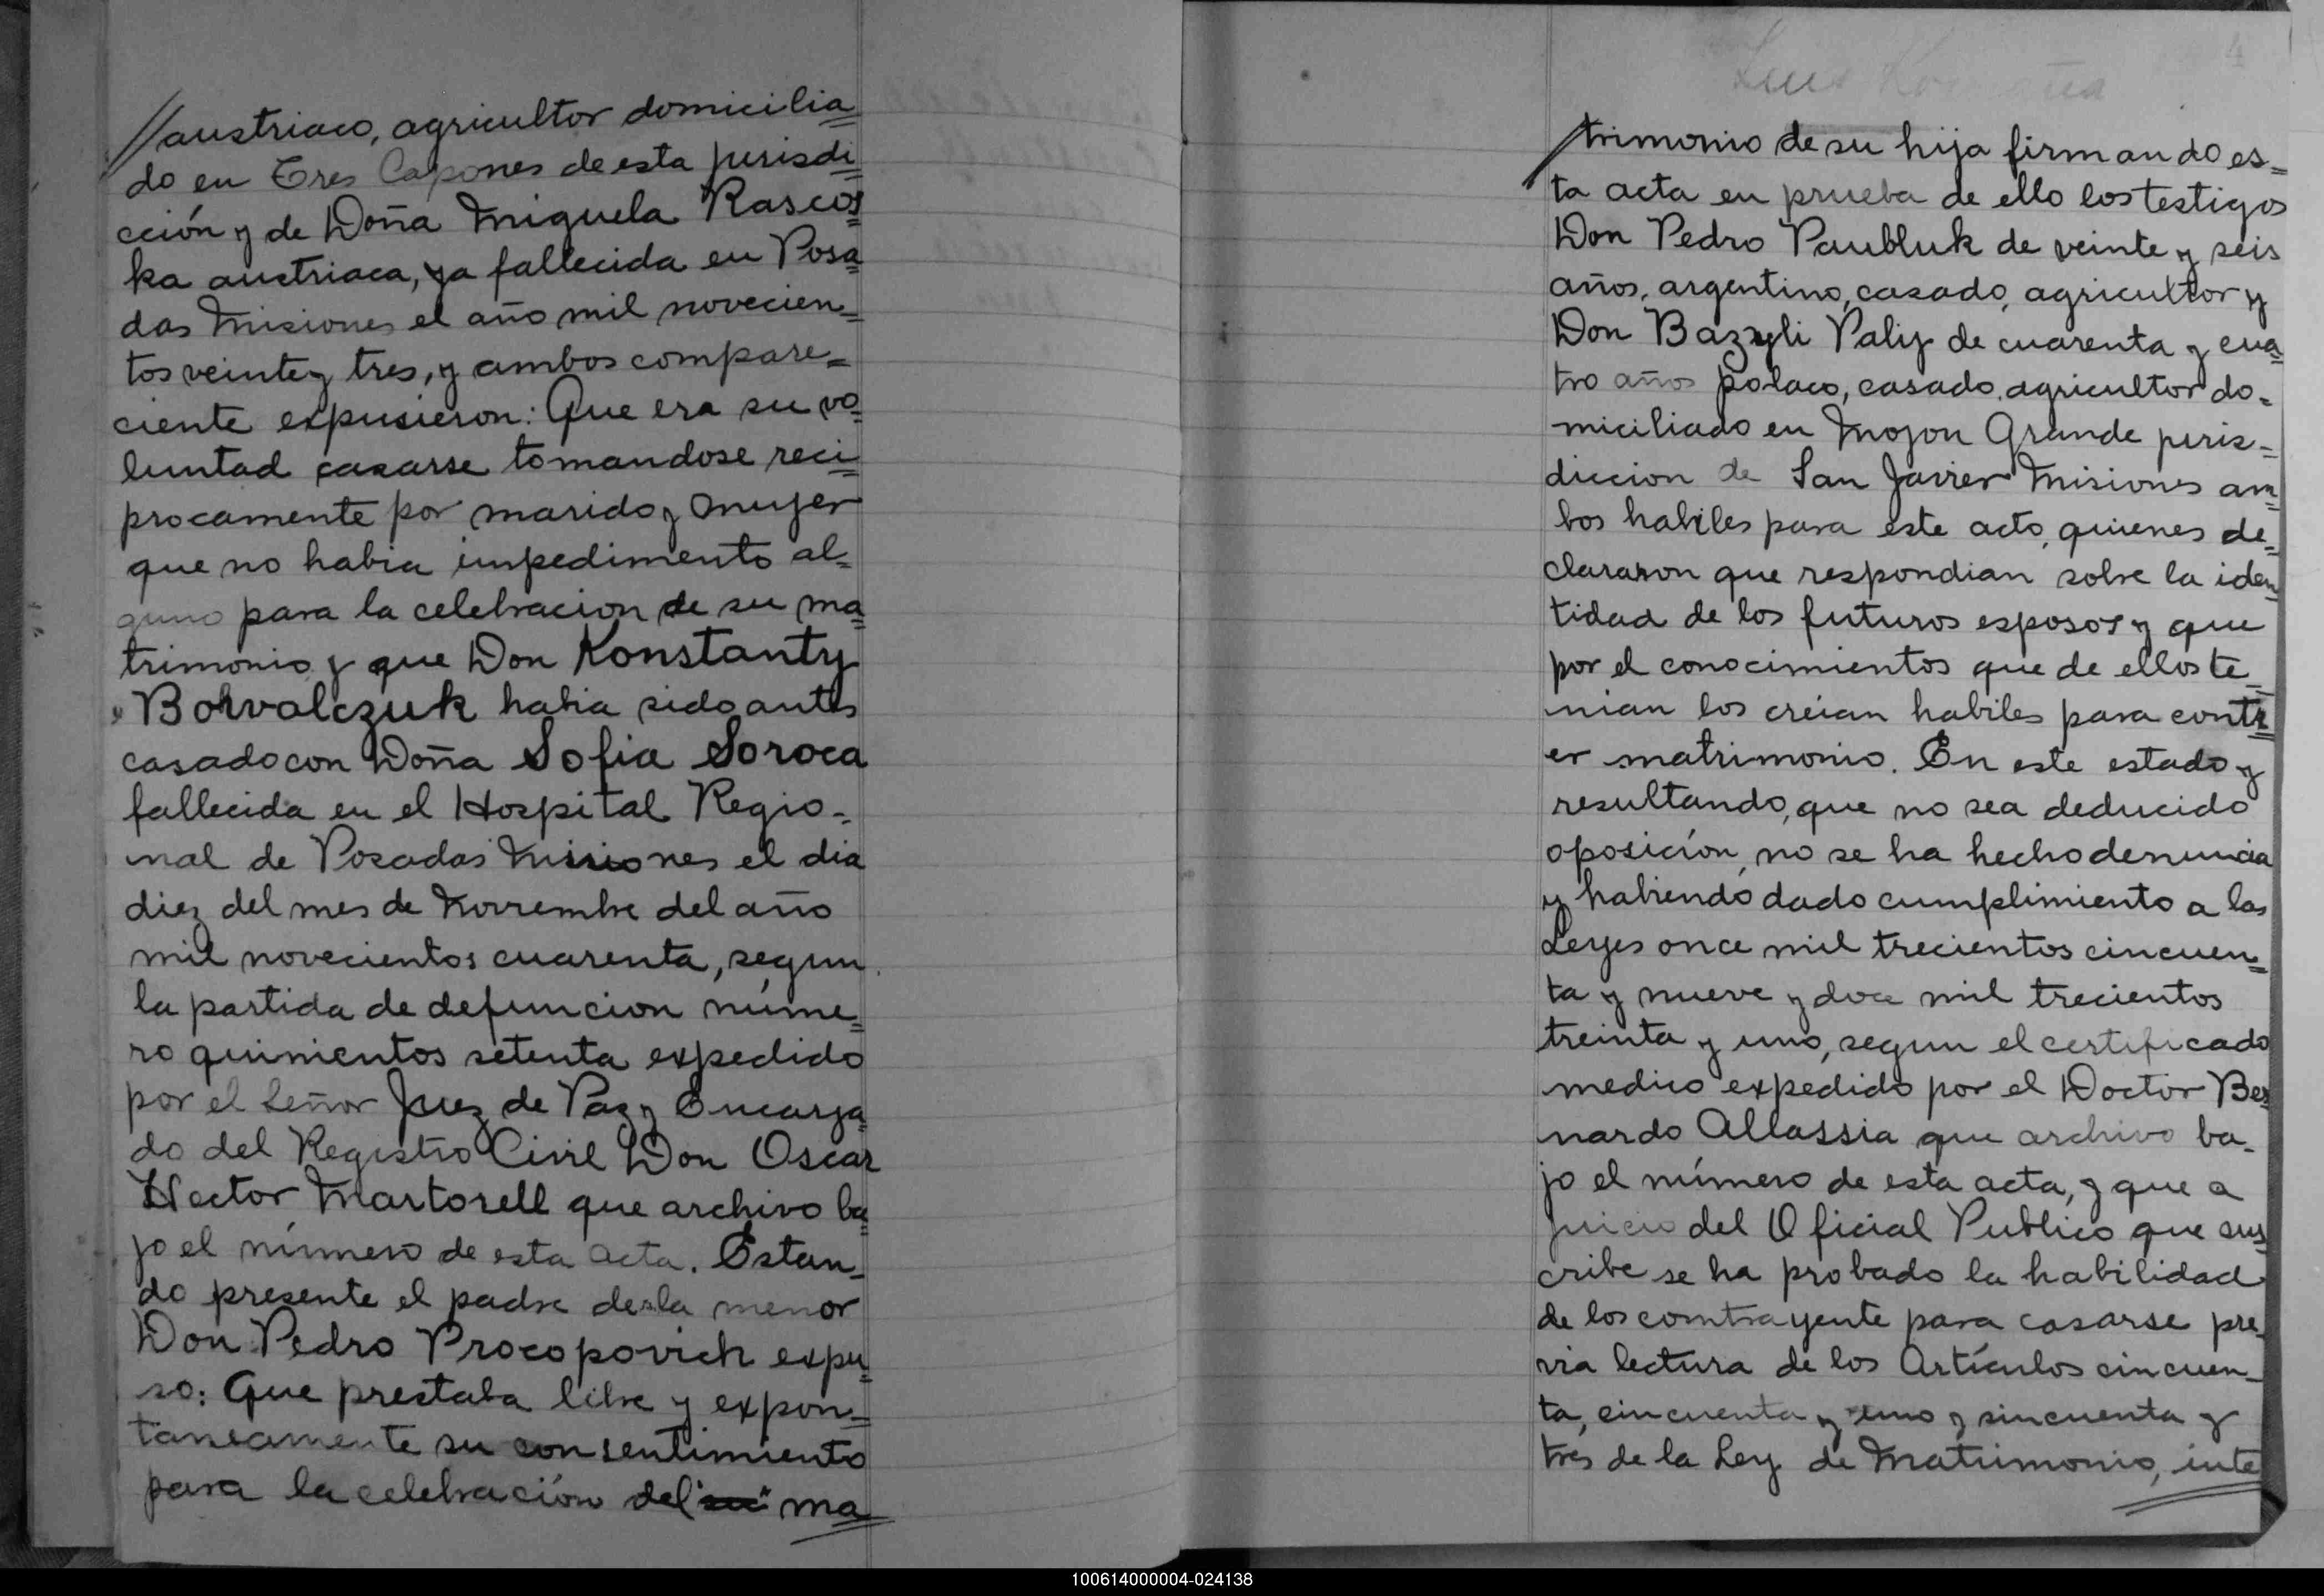 //austriaco, agricultor domicilia=
do en Tres Capones de esta jurisdi=
cción y de Doña Miguela Rascos=
ka austriaca, ya fallecida en Posa=
das Misiones el año mil novecien=
tos veinte y tres, y ambos compare=
ciente expusieron: Que era su vo=
luntad casarse tomandose reci=
procamente por marido y mujer
que no habia impedimento al=
guno para la celebracion de su ma=
trimonio y que Don Konstanty
Bohvalczuk habia sido antes
casado con Doña Sofia Soroca
fallecida en el Hospital Regio=
nal de Posadas Misiones el dia
diez del mes de Novrembre del año
mil novecientos cuarenta, segun
la partida de defuncion núme=
ro quinientos setenta expedido
por el Señor Juez de Paz y Encarga=
do del Registro Civil Don Oscar
Hector Martorell que archivo ba=
jo el número de esta acta. Estan=
do presente el padre de la menor
Don Pedro Procopovich expu=
so: Que prestaba libre y expon=
taneamente su consentimiento
para la celebración del "su" ma
Luis
4
/trimonio de su hija firmando es=
ta acta en prueba de ello los testigos
Don Pedro Paubluk de veinte y seis
años, argentino, casado, agricultor y
Don Bazyli Paliy de cuarenta y cua=
tro años polaco, casado, agricultor do=
miciliado en Mojon Grande juris=
diccion de San Javier Misiones am=
bos habiles para este acto, quienes de=
clararon que respondian sobre la iden=
tidad de los futuros esposos y que
por el conocimientos que de ellos te=
nian los creian habiles para contr=
er matrimonio. En este estado y
resultando, que no sea deducido
oposición, no se ha hecho denuncia
y habiendo dado cumplimiento a las
Leyes once mil trecientos cincuen=
ta y nueve y doce mil trecientos
treinta y uno, segun el certificado
medico expedido por el Doctor Ber=
nardo Allassia que archivo ba=
jo el número de esta acta, y que a
juicio del Oficial Publico que sus=
cribe se ha probado la habilidad
de los contrayente para casarse pre=
via lectura de los Artículos cincuen=
ta, cincuenta y uno y sincuenta y
tres de la Ley de Matrimonio, inte
100614000004-024138